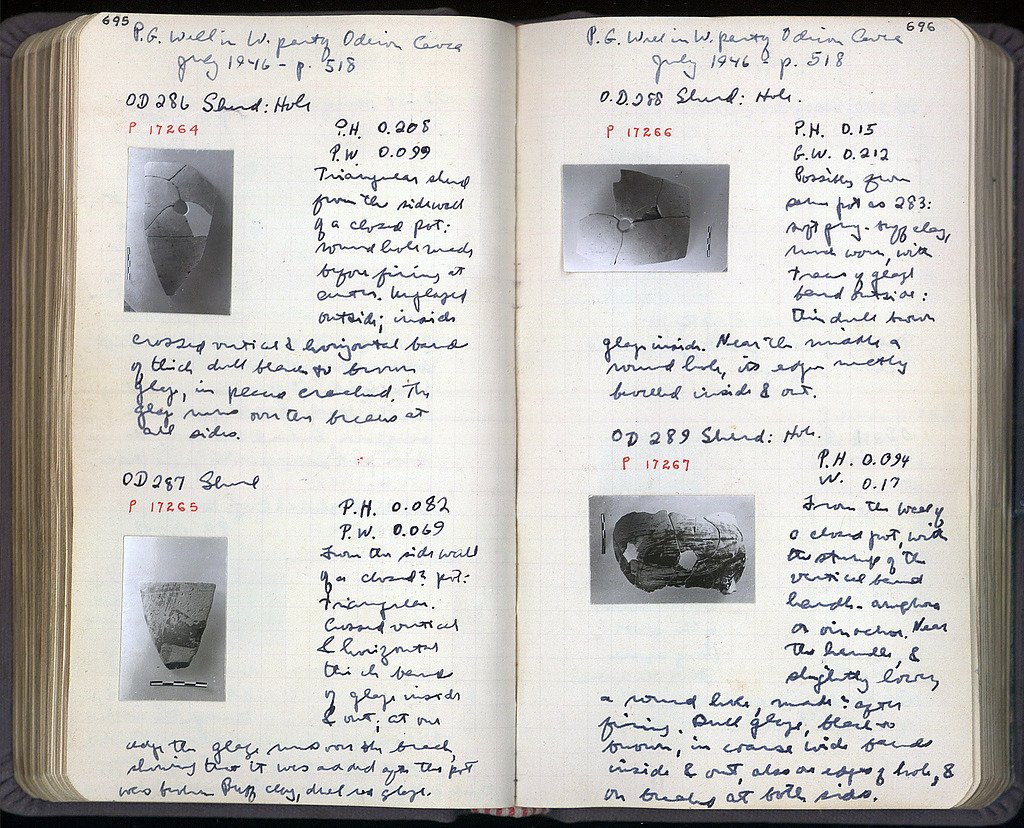 695
P.G. Well in W. party Odeion Cavea
July 1946 - p. 518
OD 286 Sherd: Hole
P 17264
P.H. 0.208
P.W 0.099
Triangular sherd
from the sidewall
of a closed pot:
round hole made
before firing at
center. Unglazed
outside; inside
crossed vertical & horizontal band
of thick dull black to brown
glaze, in places crackled. The
glaze runs over the breaks at
all sides.
OD 287 Sherd
P 17265
P.H. 0.082
P.W. 0.069
From the side wall
of a closed? pot:
triangular.
Crossed vertical
& horizontal
thick bands
of glaze inside
& out; at one
edge the glaze runs over the break,
showing that it was added after the pot
was broken. Buff clay, dull red glaze.
696
P.G. Well in W. party Odeion Cavea
July 1946 - p. 518
O.D. 288 Sherd: Hole.
P 17266
P.H. 0.15
G.W. 0.212
Possibly from
same pot as 283:
soft grey-buff clay,
much worn, with
traces of glaze
band outside:
thin dull brown
glaze inside. Near the middle a
round hole, its edges neatly
bevelled inside & out.
OD 289 Sherd: Hole.
P 17267
P.H. 0.094
W. 0.17
From the body of
a closed pot, with
the stump of the
vertical band
handle - amphora
or oinochoe. Near
the handle, &
slightly lower,
a round hole, made? after
firing. Dull glaze, black to
brown, in coarse wide bands
inside & out, also on edges of hole, &
on breaks at both sides.